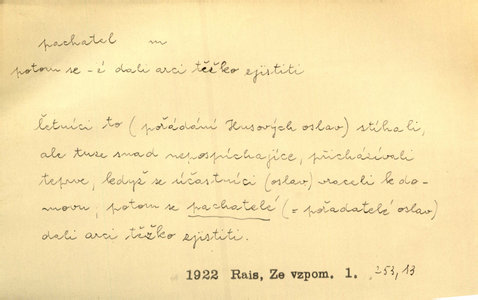 pachatel m
potom se -é dali arci těžko zjistiti
četníci to (pořádání Husových oslav) stíhali,
ale tuze snad nepospíchajíce, přicházívali
teprve, když se účastníci (oslav) vraceli k do-
movu, potom se pachatelé (= pořadatelé oslav)
dali arci těžko zjistiti.
1922 Rais, Ze vzpom. 1. 253,13